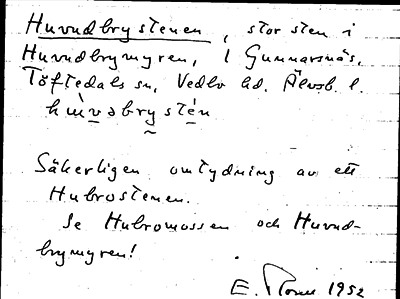 Huvudbrystenen, stor sten i
Huvudbrymyren, i Gunnarsnäs,
Töftedals sn, Vedbo hd. Älvsb. l.
hùvəbrysté̱n
Säkerligen omtydning av ett
Hubrostenen.
Se Hubromossen och Huvud-
brymyren!
E. 1952